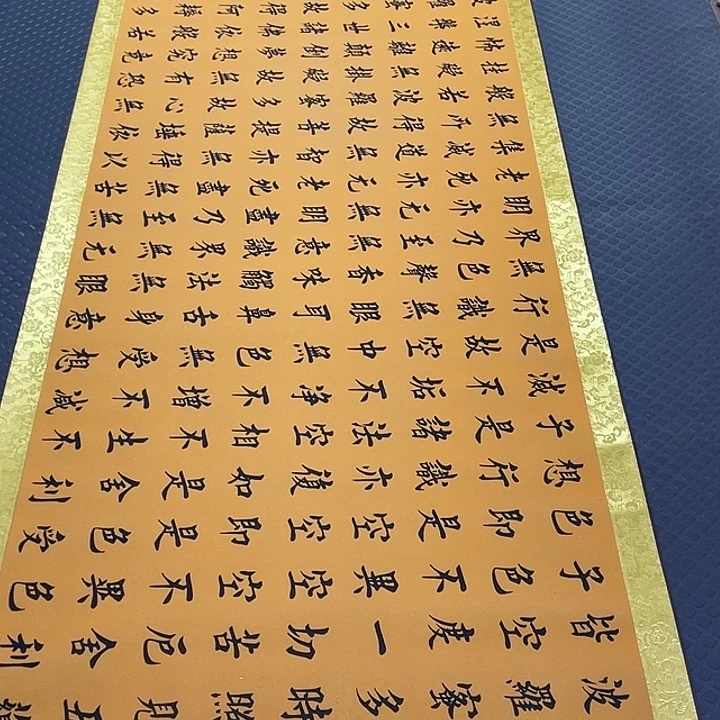 波羅蜜多時照見五蘊
皆空度一切苦厄舍利
子色不異空空不異色
色即是空空即是色受
想行識亦復如是舍利
子是諸法空相不生不
滅不垢不淨不增不減
是故空中無色無受想
行識無眼耳鼻舌身意
無色聲香味觸法無眼
界乃至無意識界無无
明亦无無明盡乃至無
老死亦无老死盡無苦
集滅道無智亦無得以
無所得故菩提薩埵依
般若波羅蜜多故心無
挂礙無挂礙故無有恐
怖遠離顛倒夢想究竟
涅槃三世諸佛依般若
波羅蜜多故得阿耨多